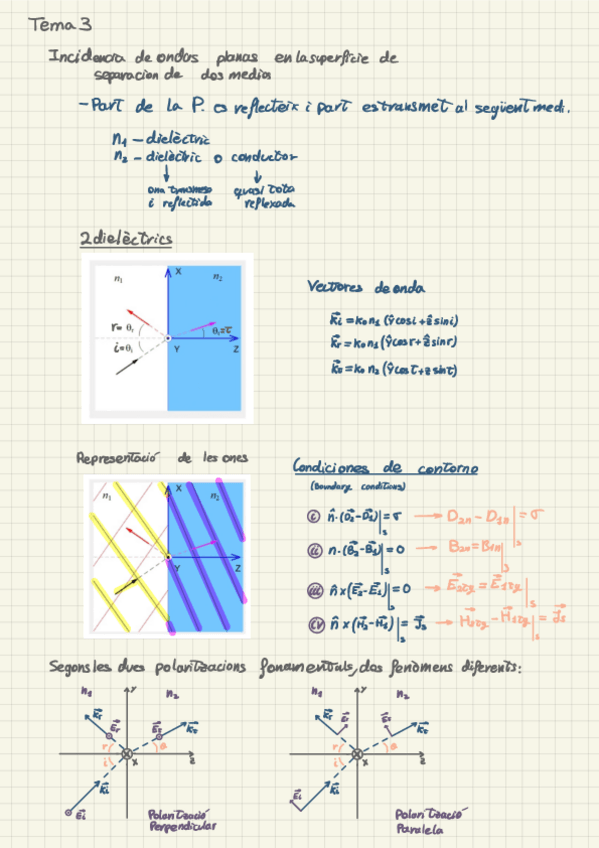 Tema 3
Incidencia de ondas planas en la superficie de
separacion de dos medios
- Part de la P. es reflecteix i part es transmet al següent medi.
n₁ - dielèctric
n₂ - dielèctric o conductor
ona transmesa quasi tota
i reflectida reflexada
2 dielèctrics
n₁ X n₂
r=θᵣ θₜ=τ
i=θᵢ Y Z
Vectores de onda
k⃗i = k₀n₁ (ŷ cos i + ẑ sin i)
k⃗r = k₀n₁ (ŷ cos r + ẑ sin r)
k⃗t = k₀ n₂ (ŷ cos τ + z sin τ)
Representació de les ones
n₁ X n₂
Y Z
Condiciones de contorno
(Boundary conditions)
i n̂·(D⃗₂-D⃗₁)|s = σ → D₂n - D₁n|s = σ
ii n·(B⃗₂-B⃗₁)|s = 0 → B₂n = B₁n|s
iii n̂ x (E⃗₂-E⃗₁)|s = 0 → E⃗₂tg = E⃗₁tg|s
iv n̂ x (H⃗₂-H⃗₁)|s = J⃗s → H⃗₂tg - H⃗₁tg|s = J⃗s
Segons les dues polaritzacions fonamentals, dos fenòmens diferents:
n₁ y n₂
k⃗r E⃗r E⃗t k⃗t
r i x z
k⃗i
E⃗i
Polarització
Perpendicular
n₁ y n₂
k⃗r E⃗r E⃗t k⃗t
r i x z
E⃗i k⃗i
Polarització
Paralela